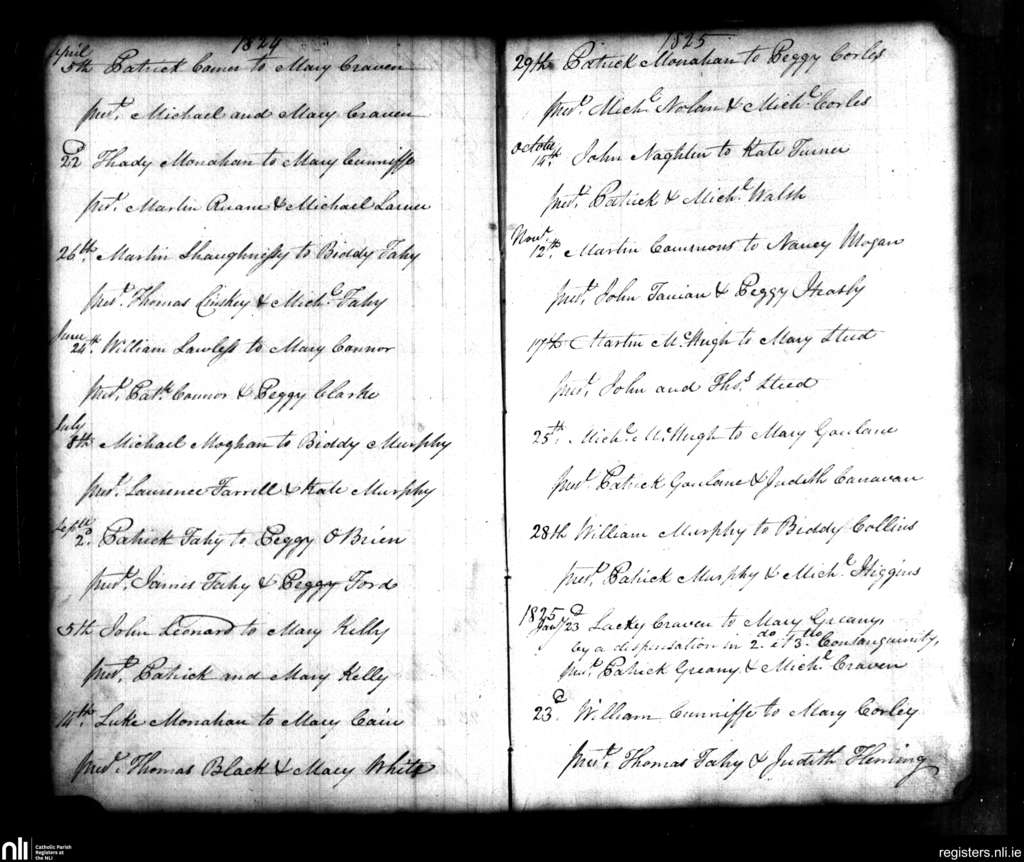 1824
April
5th Patrick Comer to Mary Craven
prest. Michael and Mary Craven
22d Thady Monahan to Mary Cunniffe
prest. Martin Ruane & Michael Larner
26th Martin Shaughnessy to Biddy Fahy
prest. Thomas Linskey & Michl. Fahy
June
24th. William Lawless to Mary Connor
prest. Patk. Connor & Peggy Clarke
July
8th Michael Moghan to Biddy Murphy
prest. Laurence Farrell & Kate Murphy
Septh
2d. Patrick Fahy to Peggy O Brien
prest. James Fahy & Peggy Ford
5th John Leonard to Mary Kelly
prest. Patrick and Mary Kelly
14th. Luke Monahan to Mary Cain
prest. Thomas Black & Mary White
1825
29th Patrick Monahan to Peggy Corles
prest. Michl. Nolan & Michl. Corles
October
14th. John Naghten to Kate Turner
prest. Patrick & Michl. Walsh
Novr.
12th. Martin Commons to Nancy Mogan
prest. John Tanian & Peggy
17th Martin McHugh to Mary Steed
prest. John and Thos. Steed
25th. Michl. McHugh to Mary Goulane
prest. Patrick Goulane & Judith Canavan
28th William Murphy to Biddy Collins
prest. Patrick Murphy & Michl. Higgins
1825
Jany 23d Lacky Craven to Mary Greany,
by a dispensation in 2do. et 3tio. Consanguinity,
prest. Patrick Greany & Michl. Craven
23d. William Cunniffe to Mary Corley
prest. Thomas Fahy & Judith Fleming
nli
Catholic Parish
Registers at
the NLI
registers.nli.ie